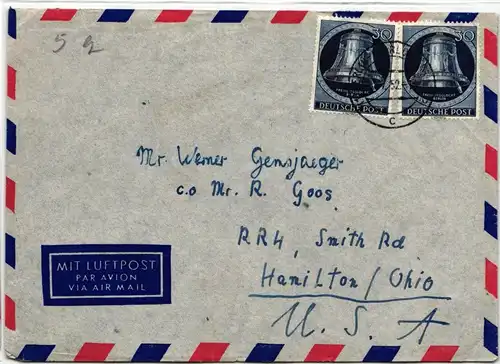 5 g
30 30
DEUTSCHE POST DEUTSCHE POST
52
c
Mr Werner Gensjaeger
c.o Mr. R. Goos
RR4, Smith Rd
Hamilton/Ohio
U. S. A
MIT LUFTPOST
PAR AVION
VIA AIR MAIL